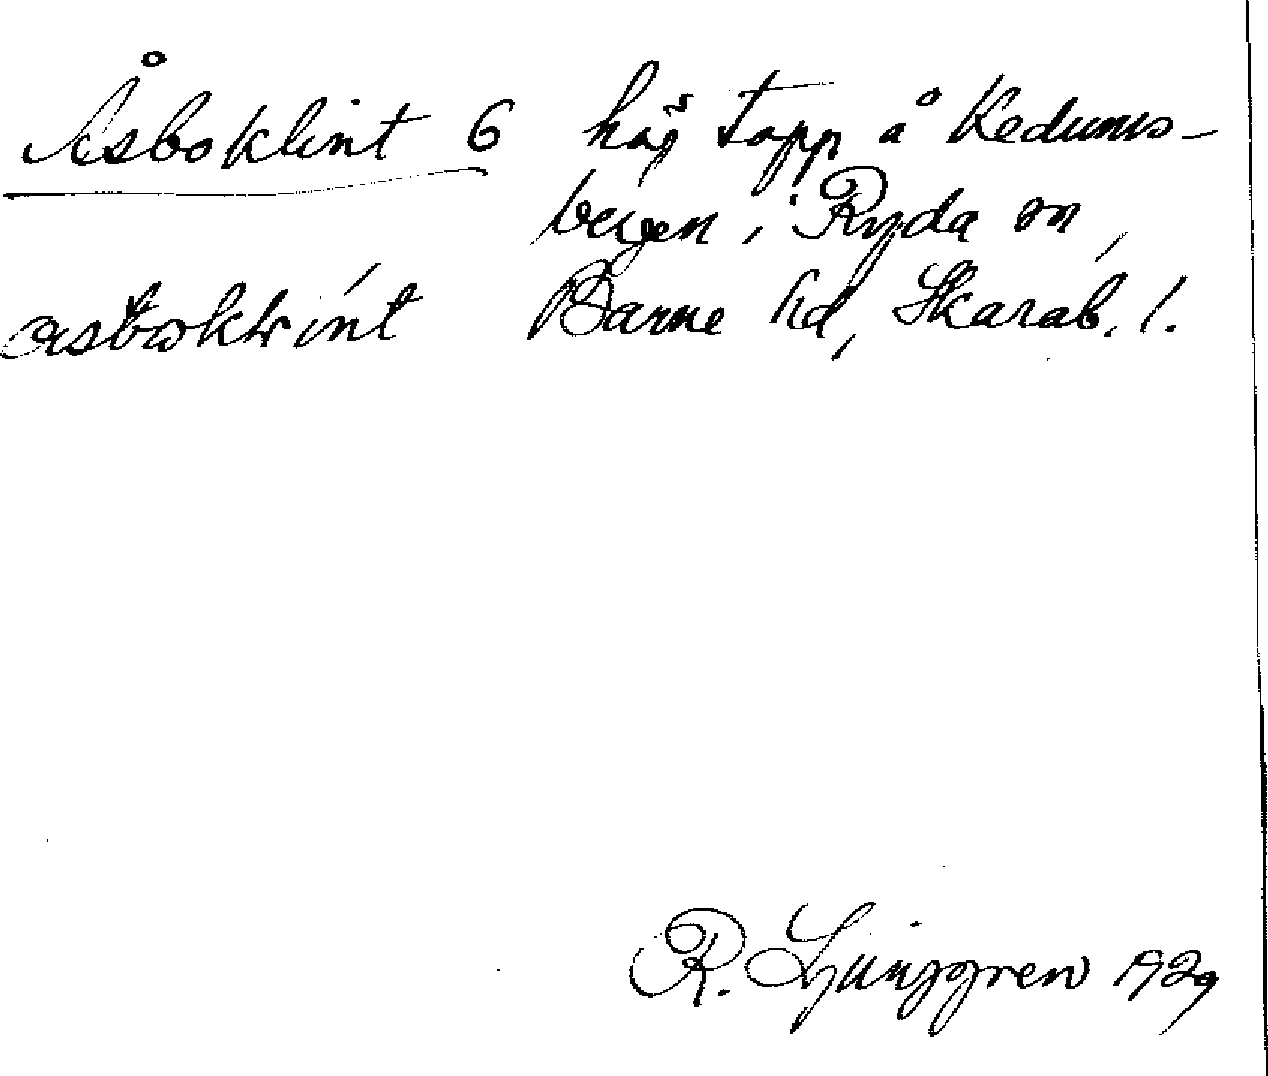 Åsboklint 6 höj topp å Kedums-
bergen i Ryda sn,
Barne hd, Skarab. l.
R. Ljunggren 1929